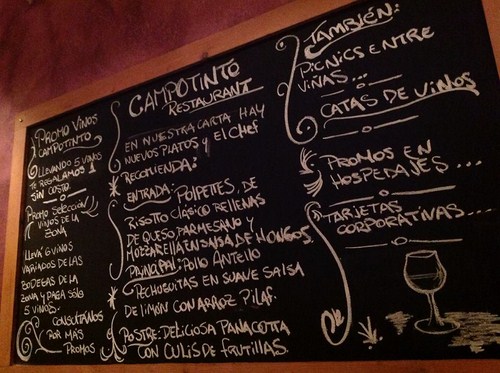 Promo Vinos
Campotinto
Llevando 5 vinos
te regalamos 1
sin costo.
Promo selección
vinos de la
zona
Llevá 6 vinos
variados de las
bodegas de la
zona y paga solo
5 vinos.
Consultános
por más
promos
Campotinto
Restaurant
En nuestra carta hay
nuevos platos y el chef
recomienda:
Entrada: Polpettes de
Risotto clásico rellenas
de queso parmesano y
mozzarella en salsa de hongos.
Principal: Pollo Antello
Pechuguitas en suave salsa
de limón con arroz Pilaf.
Postre: Deliciosa Panacotta
con culis de frutillas.
También:
Picnics entre
viñas...
Catas de vinos
Promos en
hospedajes...
Tarjetas
corporativas...